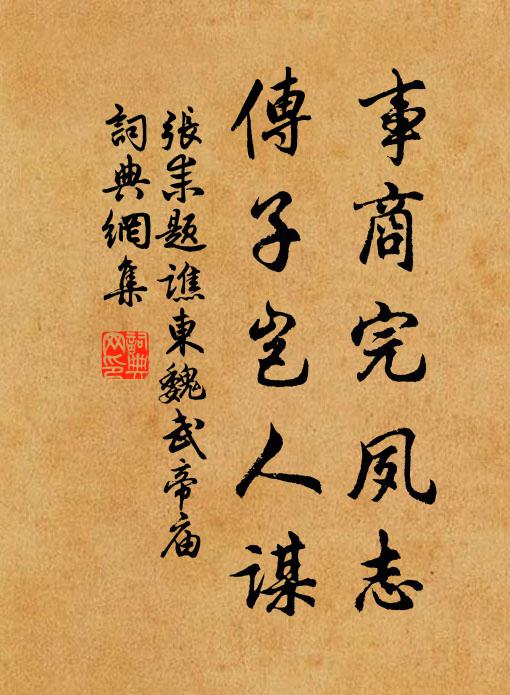 事商完夙志
傳子豈人謀
張耒題譙東魏武帝庙
詞典網集
詞典
网印